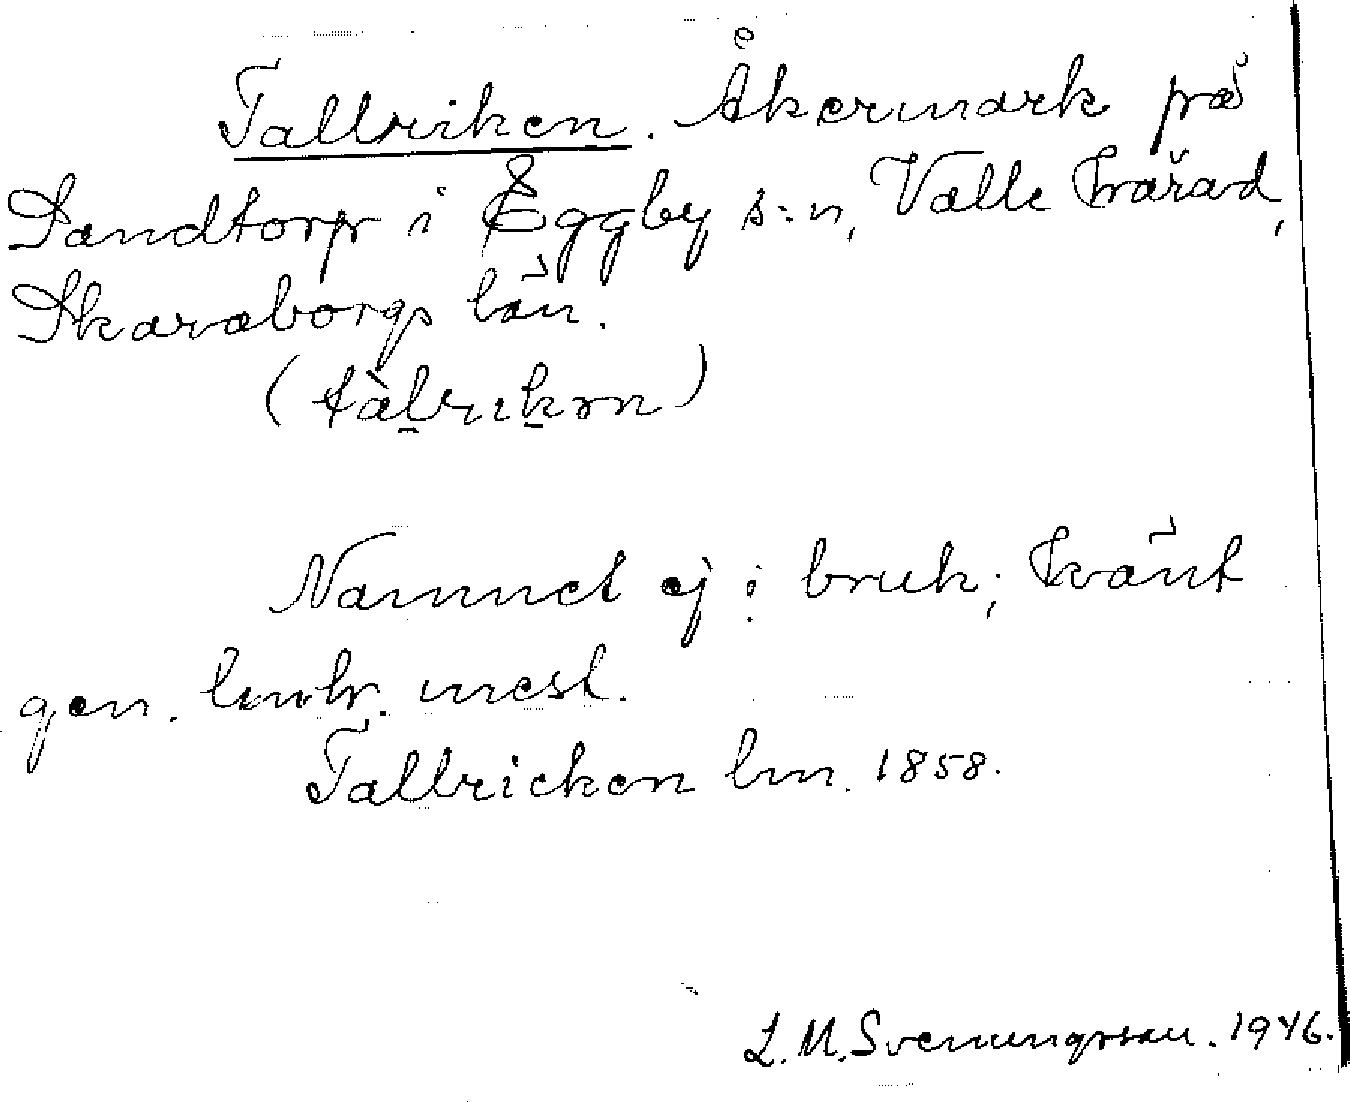 Tallriken. Åkermark på
Sandtorp i Eggby s:n, Valle härad,
Skaraborgs län.
(tàlrikən)
Namnet ej i bruk; hämt
gen. lmtr. mest.
Tallricken lm. 1858.
L.M.Svenungsson. 1946.